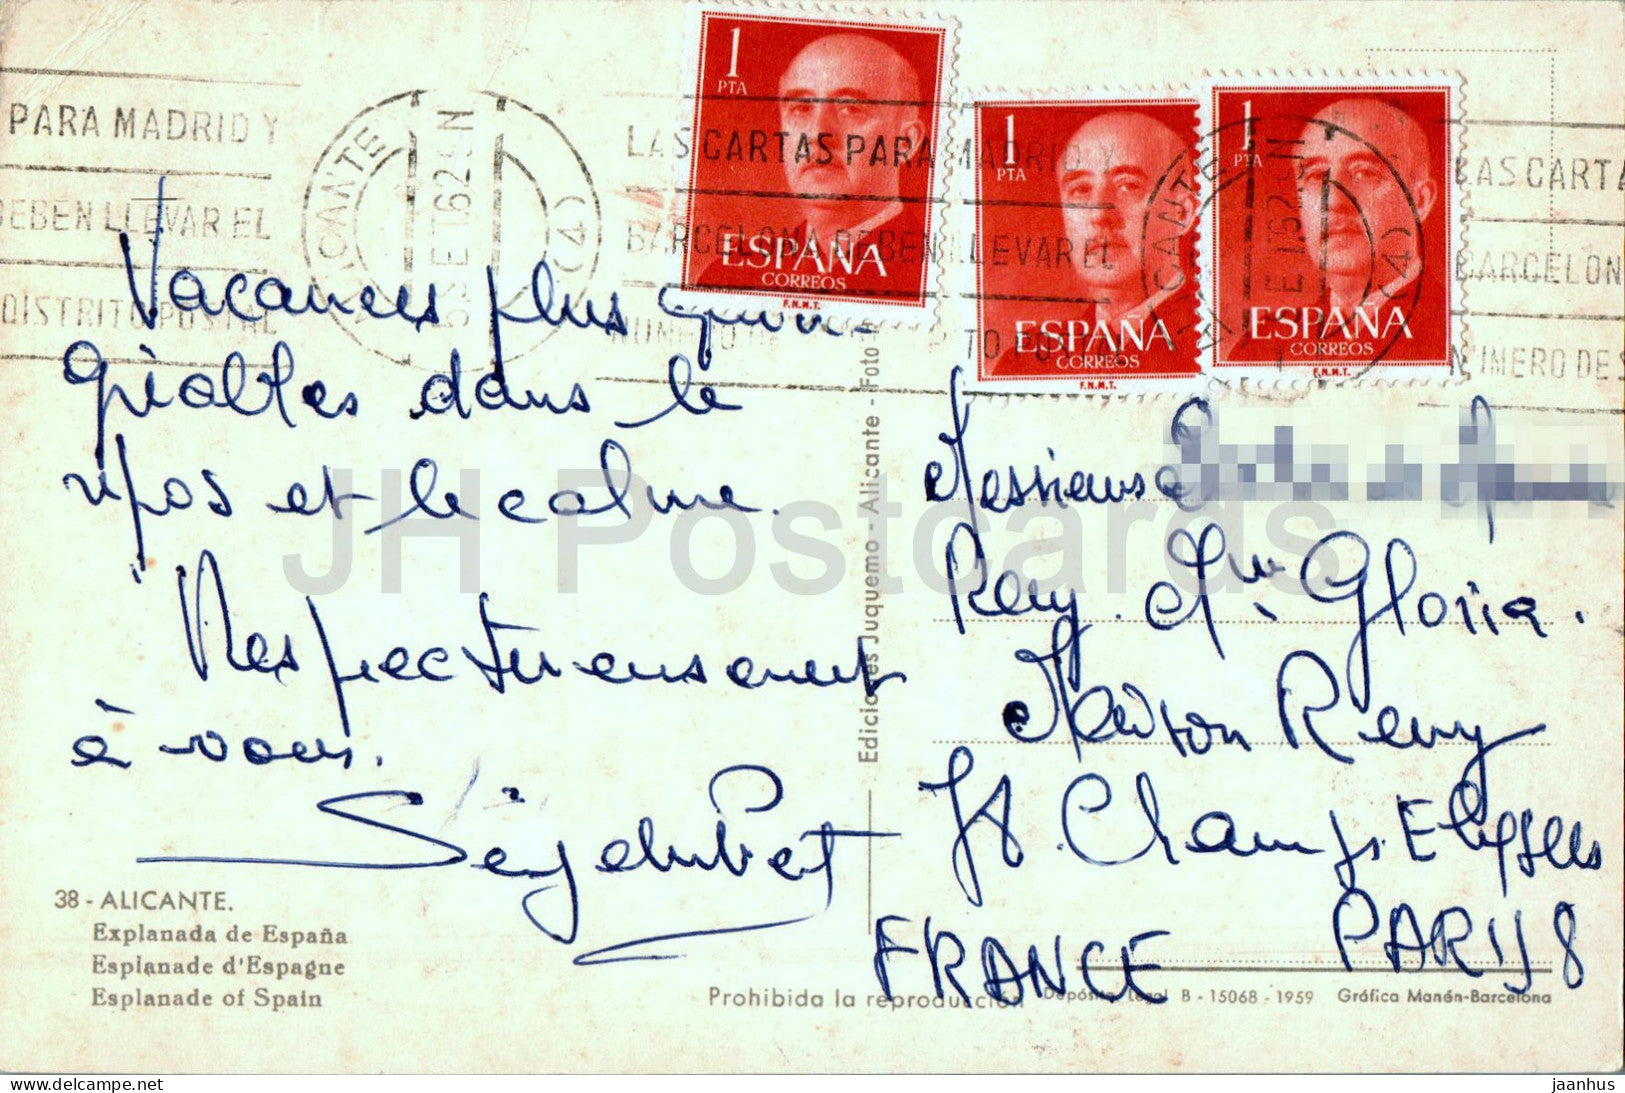 PARA MADRID Y
DEBEN LLEVAR EL
DISTRITO POSTAL
ALICANTE
(4)
LAS CARTAS PARA MADRID Y
BARCELONA DEBEN LLEVAR EL
1
PTA
ESPAÑA
CORREOS
F.N.M.T.
1
PTA
ESPAÑA
CORREOS
F.N.M.T.
1
PTA
ESPAÑA
CORREOS
F.N.M.T.
ALICANTE
(4)
LAS CARTA
BARCELON
NUMERO DE
Vacances plus
dans le
repos et le calme.
Respectueusement
à vous.
38 - ALICANTE.
Explanada de España
Esplanade d'Espagne
Esplanade of Spain
Ediciones Juquemo - Alicante - Foto
Messieurs
Remy. Gloria.
Maison Remy
78. Champs. Elysees
PARIS 8
FRANCE
Prohibida la reproducción
Depósito Legal B - 15068 - 1959 Gráfica Manén-Barcelona
JH Postcards
jaanhus
delcampe.net